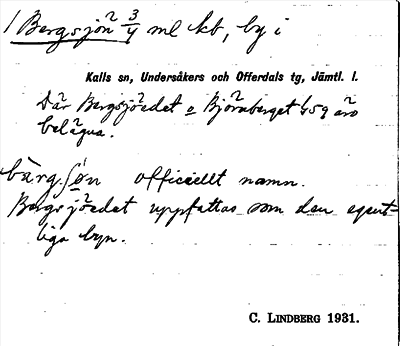 1 Bergsjön 2 3/4 ml kb, by i
Kalls sn, Undersåkers och Offerdals tg, Jämtl. l.
Där Bergsjöedet o Björnberget 459 äro
belägna.
officiellt namn.
Bergsjöedet uppfattas som den egent-
liga byn.
C. LINDBERG 1931.